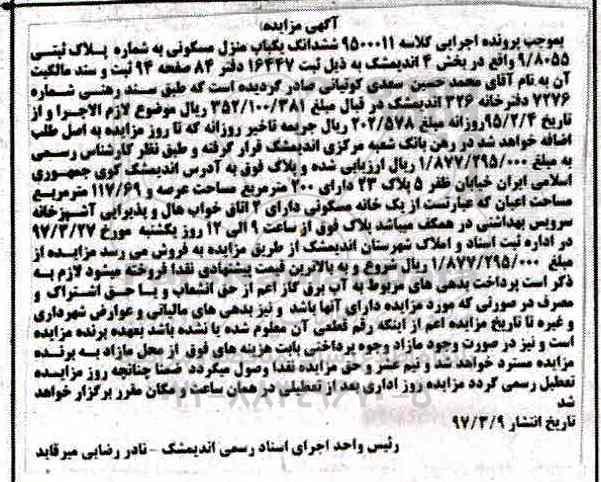 آگهی مزایده
بموجب پرونده اجرایی کلاسه ۹۵۰۰۰۱۱ ششدانگ یکباب منزل مسکونی به شماره پلاک ثبتی
۹/۸۰۵۵ واقع در بخش ۴ اندیمشک به ذیل ثبت ۱۶۴۴۷ دفتر ۸۴ صفحه ۹۴ ثبت و سند مالکیت
آن به نام آقای محمد حسین سعدی کوتیانی صادر گردیده است که طبق سند رهنی شماره
۷۲۷۶ دفترخانه ۳۲۶ اندیمشک در قبال مبلغ ۳۵۲/۱۰۰/۳۸۱ ریال موضوع لازم الاجرا و از
تاریخ ۹۵/۲/۴ روزانه مبلغ ۲۰۲/۵۷۸ ریال جریمه تاخیر روزانه که تا روز مزایده به اصل طلب
اضافه خواهد شد در رهن بانک شعبه مرکزی اندیمشک قرار گرفته و طبق نظر کارشناس رسمی
به مبلغ ۱/۸۷۷/۲۹۵/۰۰۰ ریال ارزیابی شده و پلاک فوق به آدرس اندیمشک کوی جمهوری
اسلامی ایران خیابان ظفر ۵ پلاک ۲۳ دارای ۲۰۰ مترمربع مساحت عرصه و ۱۱۷/۶۹ مترمربع
مساحت اعیان که عبارتست از یک خانه مسکونی دارای ۲ اتاق خواب هال و پذیرایی آشپزخانه
سرویس بهداشتی در همکف میباشد پلاک فوق از ساعت ۹ الی ۱۲ روز یکشنبه مورخ ۹۷/۳/۲۷
در اداره ثبت اسناد و املاک شهرستان اندیمشک از طریق مزایده به فروش می رسد مزایده از
مبلغ ۱/۸۷۷/۲۹۵/۰۰۰ ریال شروع و به بالاترین قیمت پیشنهادی نقدا فروخته میشود لازم به
ذکر است پرداخت بدهی های مربوط به آب برق گاز اعم از حق انشعاب و یا حق اشتراک و
مصرف در صورتی که مورد مزایده دارای آنها باشد و نیز بدهی های مالیاتی و عوارض شهرداری
و غیره تا تاریخ مزایده اعم از اینکه رقم قطعی آن معلوم شده یا نشده باشد بعهده برنده مزایده
است و نیز در صورت وجود مازاد وجوه پرداختی بابت هزینه های فوق از محل مازاد به برنده
مزایده مسترد خواهد شد و نیم عشر و حق مزایده نقدا وصول میگردد ضمنا چنانچه روز مزایده
تعطیل رسمی گردد مزایده روز اداری بعد از تعطیلی در همان ساعت و مکان مقرر برگزار خواهد
شد
تاریخ انتشار ۹۷/۳/۹
رئیس واحد اجرای اسناد رسمی اندیمشک - نادر رضایی میرقاید